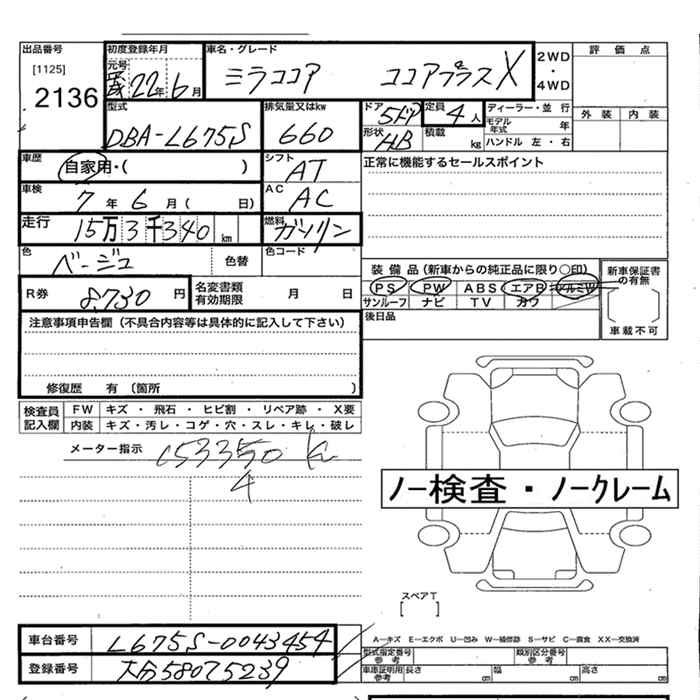 出品番号
[1125]
2136
初度登録年月
元号
22年6月
車名・グレード
ミラココア ココアプラスX
2WD
・
4WD
評価点
外装 内装
型式
DBA-L675S
排気量又はkw
660
ドア
5ドア
形状
HB
定員
4人
積載
kg
ディーラー・並行
モデル年式 年
ハンドル 左・右
車歴
自家用・( )
シフト
AT
正常に機能するセールスポイント
車検
7年6月( 日)
AC
AC
走行
15万3千340km
燃料
ガソリン
色
ベージュ
色替
色コード
R券
8,730円
名変書類有効期限
月 日
装備品(新車からの純正品に限り○印)
PS PW ABS エアB アルミW
サンルーフ ナビ TV カワ
新車保証書の有無
車載不可
後日品
注意事項申告欄(不具合内容等は具体的に記入して下さい)
修復歴 有(箇所 )
検査員記入欄
FW キズ・飛石・ヒビ割・リペア跡・X要
内装 キズ・汚レ・コゲ・穴・スレ・キレ・破レ
メーター指示
153350 K
4
ノー検査・ノークレーム
スペアT
[ ]
車台番号
L675S-0043454
登録番号
大分580 75239
A―キズ E―エクボ U―凹み W―補修跡 S―サビ C―腐食 XX―交換済
型式指定番号
参考
類別区分番号
参考
車庫証明用
参考
長さ cm 幅 cm 高さ cm